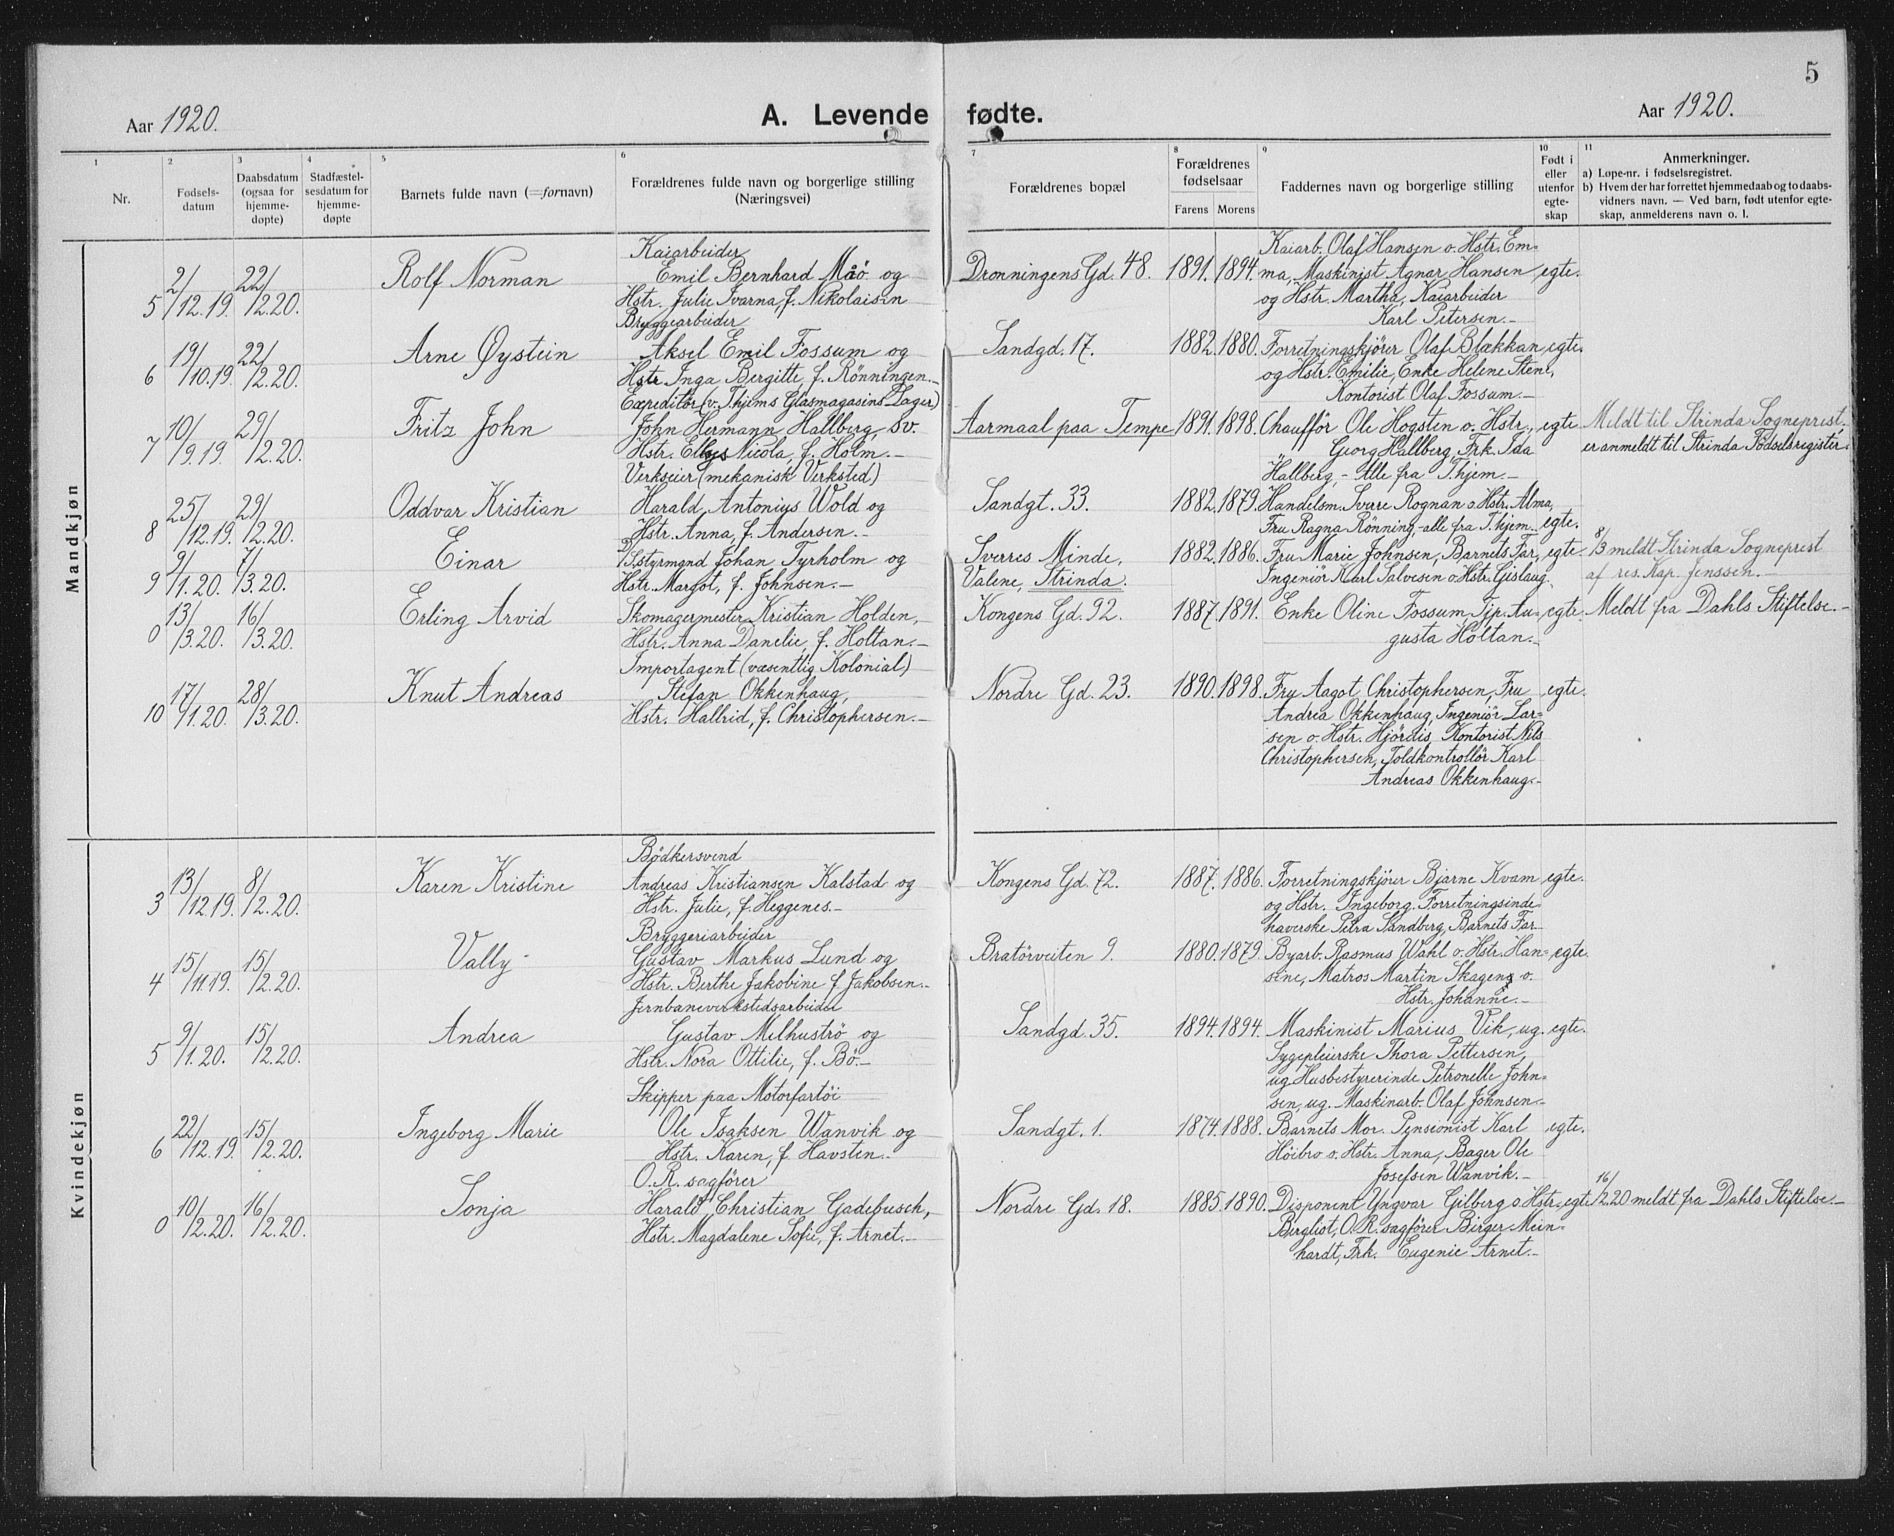 5
Aar 1920.
A. Levende fødte.
Aar 1920.
1 Nr.
2 Fødselsdatum
3 Daabsdatum (ogsaa for hjemmedøpte)
4 Stadfæstelsesdatum for hjemmedøpte
5 Barnets fulde navn (=fornavn)
6 Forældrenes fulde navn og borgerlige stilling (Næringsvei)
7 Forældrenes bopæl
8 Forældrenes fødselsaar
Farens Morens
9 Faddernes navn og borgerlige stilling
10 Født i eller utenfor egteskap
11 Anmerkninger.
a) Løpe-nr. i fødselsregistret.
b) Hvem der har forrettet hjemmedaab og to daabsvidners navn. — Ved barn, født utenfor egteskap, anmelderens navn o. l.
Mandkjøn
5 2/12.19. 22/2.20. Rolf Norman
Kaiarbeider
Emil Bernhard Moö og
Hstr. Julie Ivarna, f. Nikolaisen
Dronningens Gd. 48. 1891. 1894.
Kaiarb. Olaf Hansen o. Hstr. Em-
ma, Maskinist Agnar Hansen egte.
og Hstr. Martha, Kaiarbeider
Karl Petersen.-
6 19/10.19. 22/2.20. Arne Øystein
Bryggearbeider
Aksel Emil Fossum og
Hstr. Inga Bergitte, f. Rönningen.-
Sandgd. 17. 1882. 1880.
Forretningskjörer Olaf Blækkan egte.
og Hstr. Emilie, Enke Helene Stene,
Kontorist Olaf Fossum.-
7 10/9.19. 29/2.20. Fritz John
Expeditör (v. Thjems Glasmagasins Lager)
John Hermann Hallberg, sv.
Hstr. Nicola, f. Holm.-
Aarmaal paa Tempe 1891. 1898.
Chaufför Ole Hogsten o. Hstr., egte
Georg Hallberg, Frk. Ida
Hallberg, - Alle fra T.hjem.-
Meldt til Strinda Sogneprest.
er anmeldt til Strinda Födselsregister.
8 25/12.19. 29/2.20. Oddvar Kristian
Verkseier (mekanisk Verksted)
Harald Antonius Wold og
Hstr. Anna, f. Andersen.-
Sandgt. 33. 1882. 1879.
Handelsm. Sverre Rognan o. Hstr. Alma,
Fru Ragna Rönning,-alle fra T.hjem. egte.
9 9/1.20. 7/3.20. Einar
Styrmand Johan Tyrholm og
Hstr. Margot, f. Johnsen.-
Sverres Minde,
Valene, Strinda. 1882. 1886.
Fru Marie Johnsen, Barnets Far, egte
Ingeniör Karl Salvesen o. Hstr. Gislaug.
8/3 meldt Strinda Sogneprest
af res. Kap. Jenssen.-
0 13/3.20. 16/3.20. Erling Arvid
Skomagermester Kristian Holden,
Hstr. Anna Danelie, f. Holtan.-
Kongens Gd. 92. 1887. 1891.
Enke Oline Fossum, Tjp. Au- egte.
gusta Holtan.-
Meldt fra Dahls Stiftelse.-
10 17/1.20. 28/3.20. Knut Andreas
Importagent (væsentlig Kolonial)
Stefan Okkenhaug,
Hstr. Hallrid, f. Christophersen.-
Nordre Gd. 23. 1890. 1898.
Fru Aagot Christophersen, Fru egte.
Andrea Okkenhaug, Ingeniör Lar-
sen o. Hstr. Hjördis, Kontorist Nils
Christophersen, Toldkontrollör Karl
Andreas Okkenhaug.-
Kvindekjøn
3 13/12.19. 8/2.20. Karen Kristine
Bödkersvend
Andreas Kristiansen Kalstad og
Hstr. Julie, f. Heggenes.-
Kongens Gd. 72. 1887. 1886.
Forretningskjörer Bjarne Kvam egte.
og Hstr. Ingeborg. Forretningsinde-
haverske Petra Sandberg, Barnets Far.
4 15/11.19. 15/2.20. Vally
Bryggeriarbeider
Gustav Markus Lund og
Hstr. Berthe Jakobine f. Jakobsen.-
Bratörveiten 9. 1880. 1879.
Byarb. Rasmus Wahl o. Hstr. Han- egte.
sine, Matros Martin Skagen o.
Hstr. Johanne.-
5 9/1.20. 15/2.20. Andrea
Jernbaneverkstedsarbeider
Gustav Melhuströ og
Hstr. Nora Ottilie, f. Bö.-
Sandgd. 35. 1894. 1894.
Maskinist Marius Vik, ug. egte.
Sygepleierske Thora Pettersen,
ug. Husbestyrerinde Petronelle John-
sen, ug. Maskinarb. Olaf Johnsen.-
6 22/12.19. 15/2.20. Ingeborg Marie
Skipper paa Motorfartöi
Ole Isaksen Wanvik og
Hstr. Karen, f. Havsten.-
Sandgt. 1. 1874. 1888.
Barnets Mor. Pensionist Karl egte.
Höibro o. Hstr. Anna, Bager Ole
Josefsen Wanvik.-
0 10/2.20. 16/2.20. Sonja
O.R. sagförer
Harald Christian Gadebusch,
Hstr. Magdalene Sofie, f. Arnet.-
Nordre Gd. 18. 1885. 1890.
Disponent Yngvar Gilberg o. Hstr. egte
Bergliot, O.R. sagförer Birger Mein-
hardt, Frk. Eugenie Arnet.-
16/2.20 meldt fra Dahls Stiftelse.-